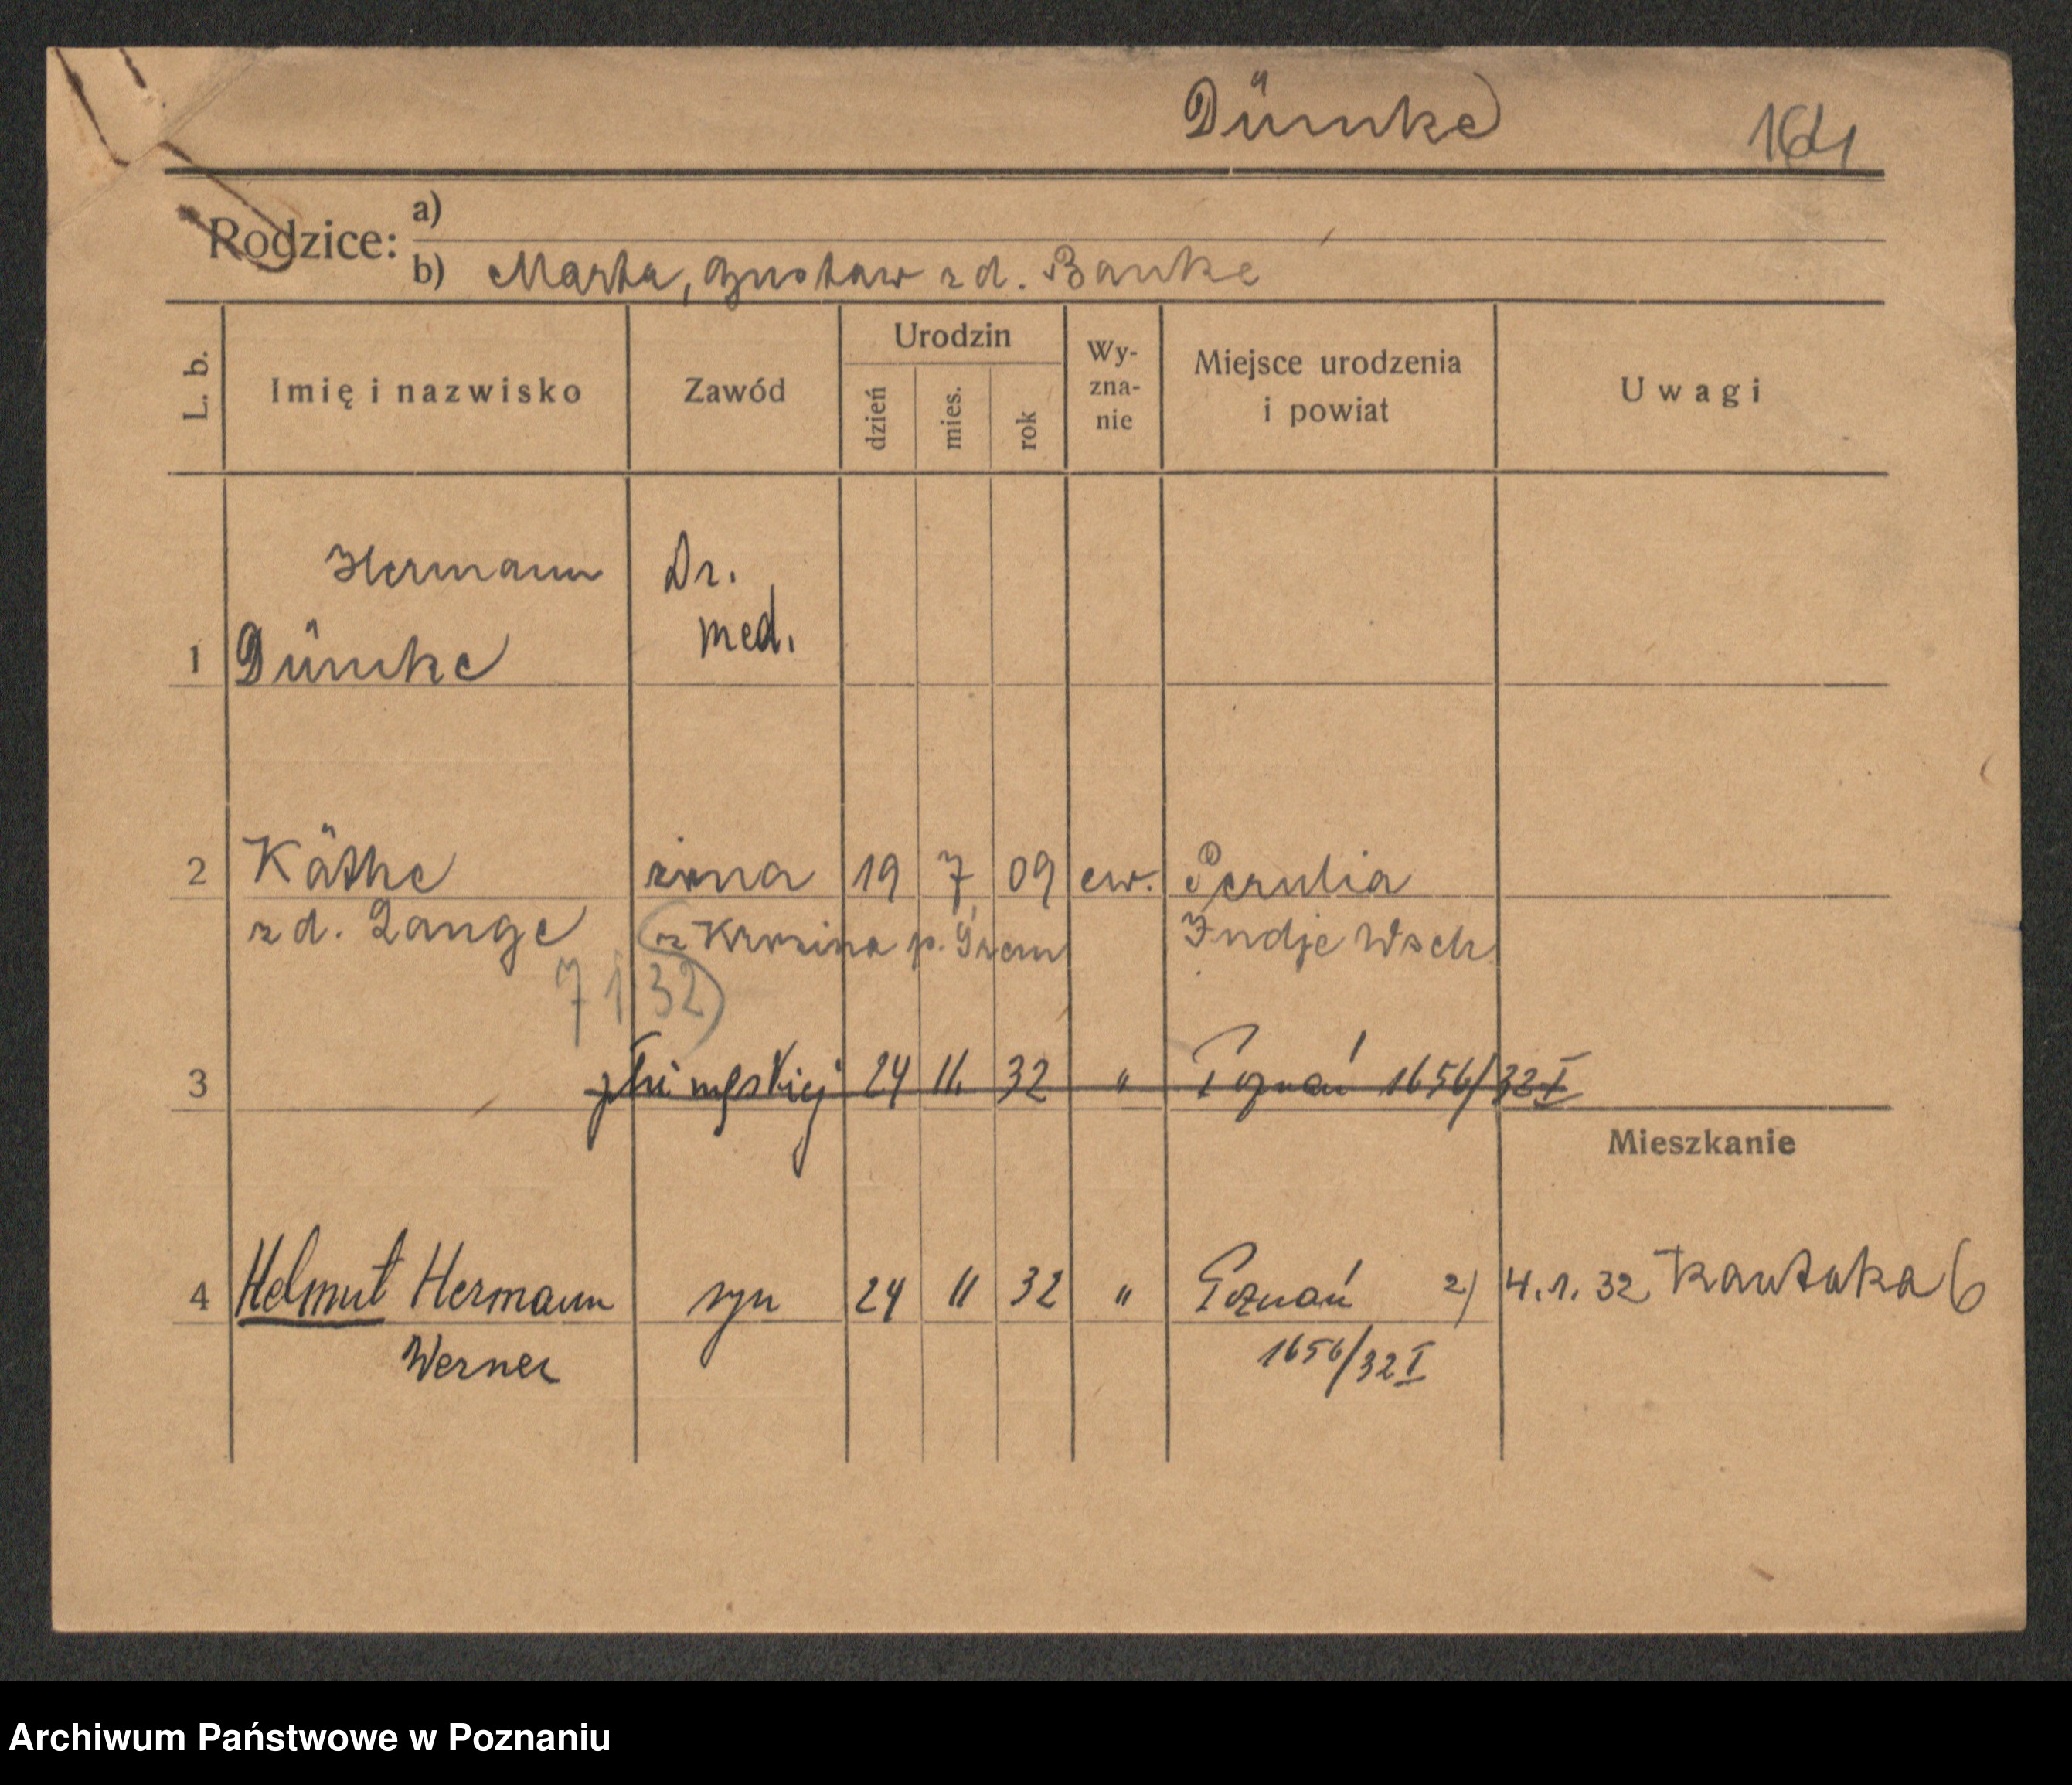 Dümke 164
Rodzice:
a)
b) Marta, Gustaw zd. Banke
L. b. Imię i nazwisko Zawód Urodzin dzień mies. rok Wy-zna-nie Miejsce urodzenia i powiat Uwagi
Hermann Dr.
1 Dümke med.
2 Käthe żona 19 7 09 ew. Perulia
zd. Lange (z Krzsina p. Śrem Indje Wsch.
7 1 32)
3 płci męskiej 24 11. 32 " Poznań 1656/32 I
Mieszkanie
4 Helmut Hermann syn 24 11 32 " Poznań 2) 4.1.32 Kantaka 6
Werner 1656/32 I
Archiwum Państwowe w Poznaniu